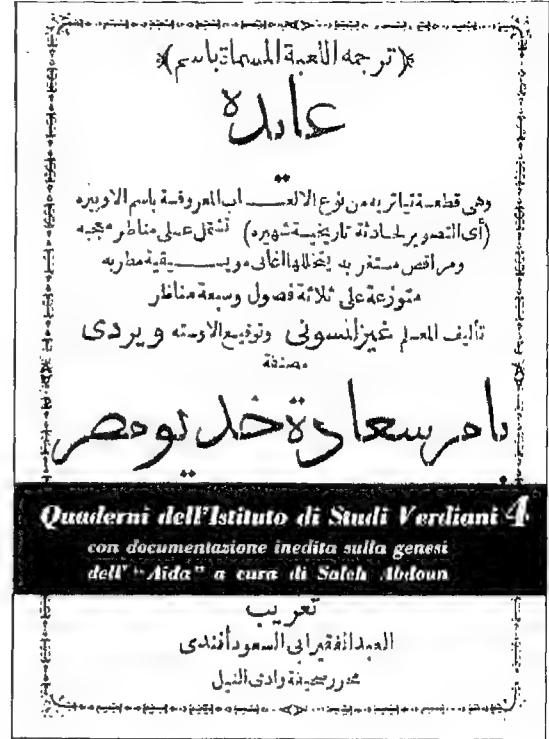 ﴿ترجمه اللعبة المسماة باسم﴾
عايدة
وهى قطعة تياتريه من نوع الالعـــاب المعروفة باسم الاوبيره
(أى التصوير لحادثة تاريخيـة شهيره) تشتمل على مناظر عجيبه
ومراقص مستغربه يتخللها أغانى مويـــسيقية مطربه
متوزعة على ثلاثة فصول وسبعة مناظر
تأليف المعلم غيزلنسونى وتوقيع الاوسته ويردى
مصنفة
بامر سعادة خديو مصر
Quaderni dell'Istituto di Studi Verdiani 4
con documentazione inedita sulla genesi
dell' "Aida" a cura di Saleh Abdoun
تعريب
العبد الفقير ابى السعود أفندى
محرر صحيفة وادى النيل